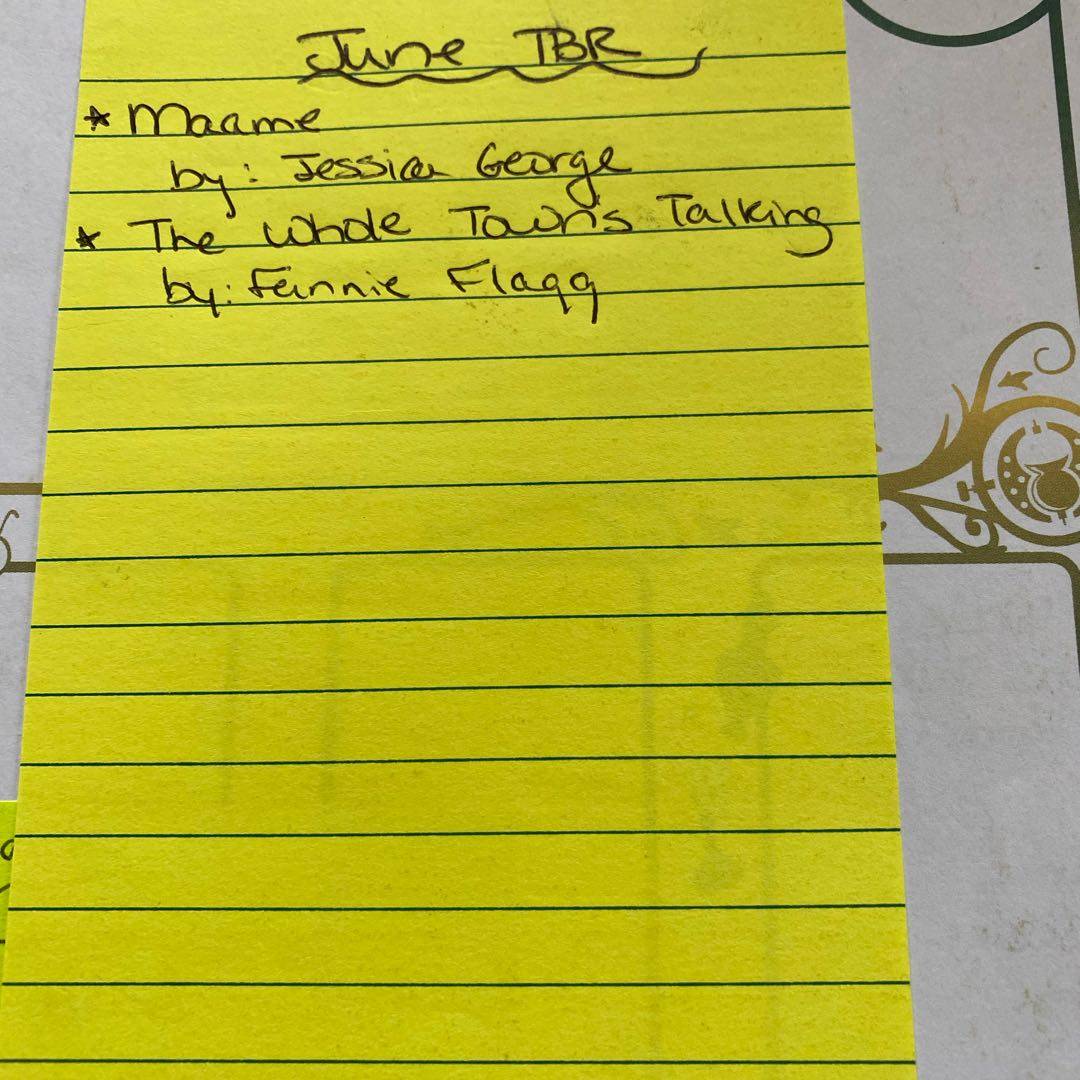 June TBR
* Maame
by: Jessica George
* The Whole Town's Talking
by: Fannie Flagg